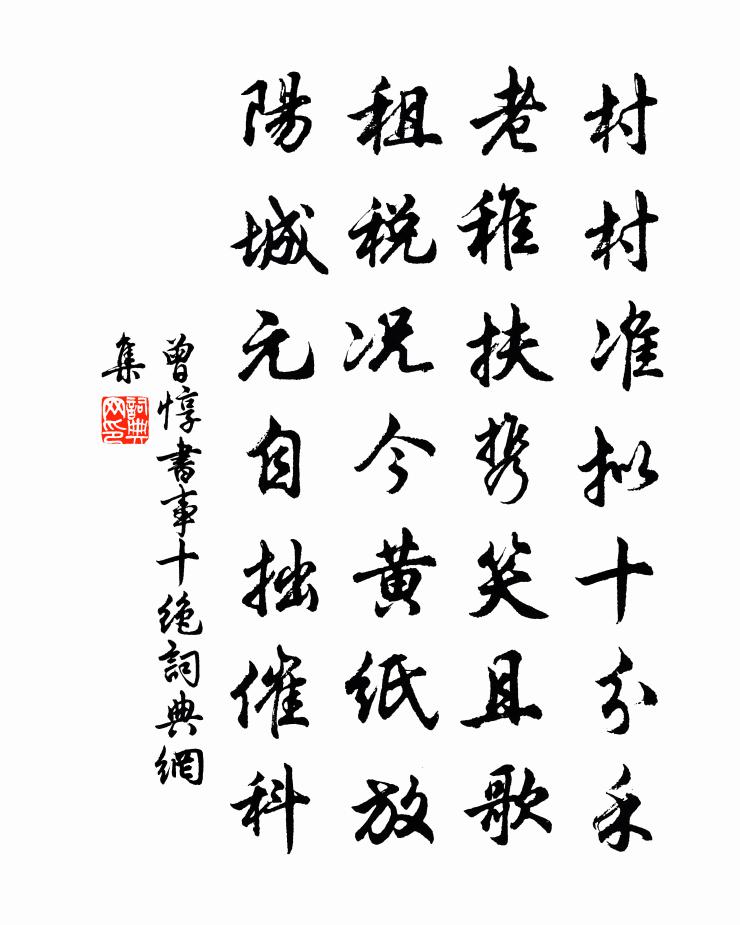 村村准拟十分禾
老稚扶携笑且歌
租税况今黄纸放
陽城元自拙催科
曾惇書事十绝詞典網
集
詞典
网印